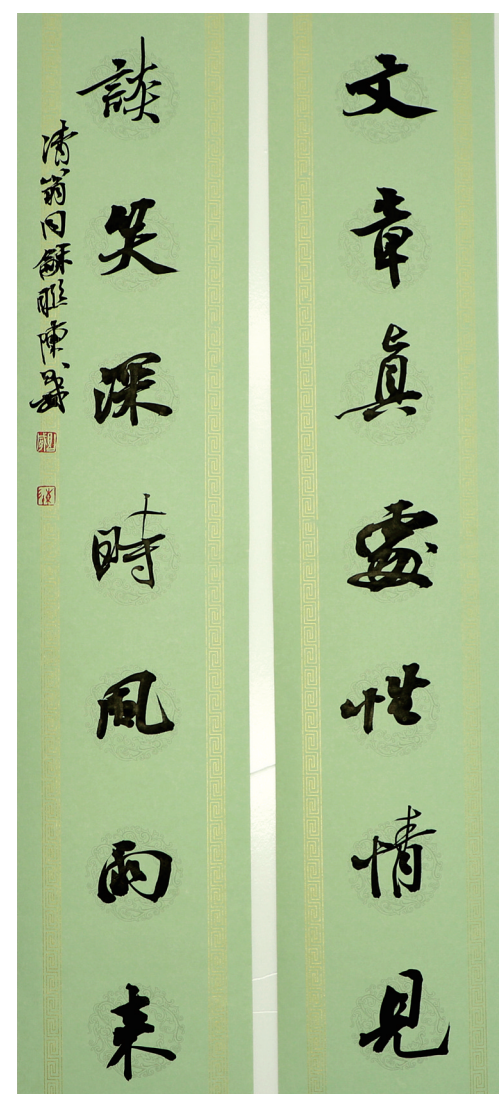 文章真處性情見
談笑深時風雨来
清翁同龢聯陳